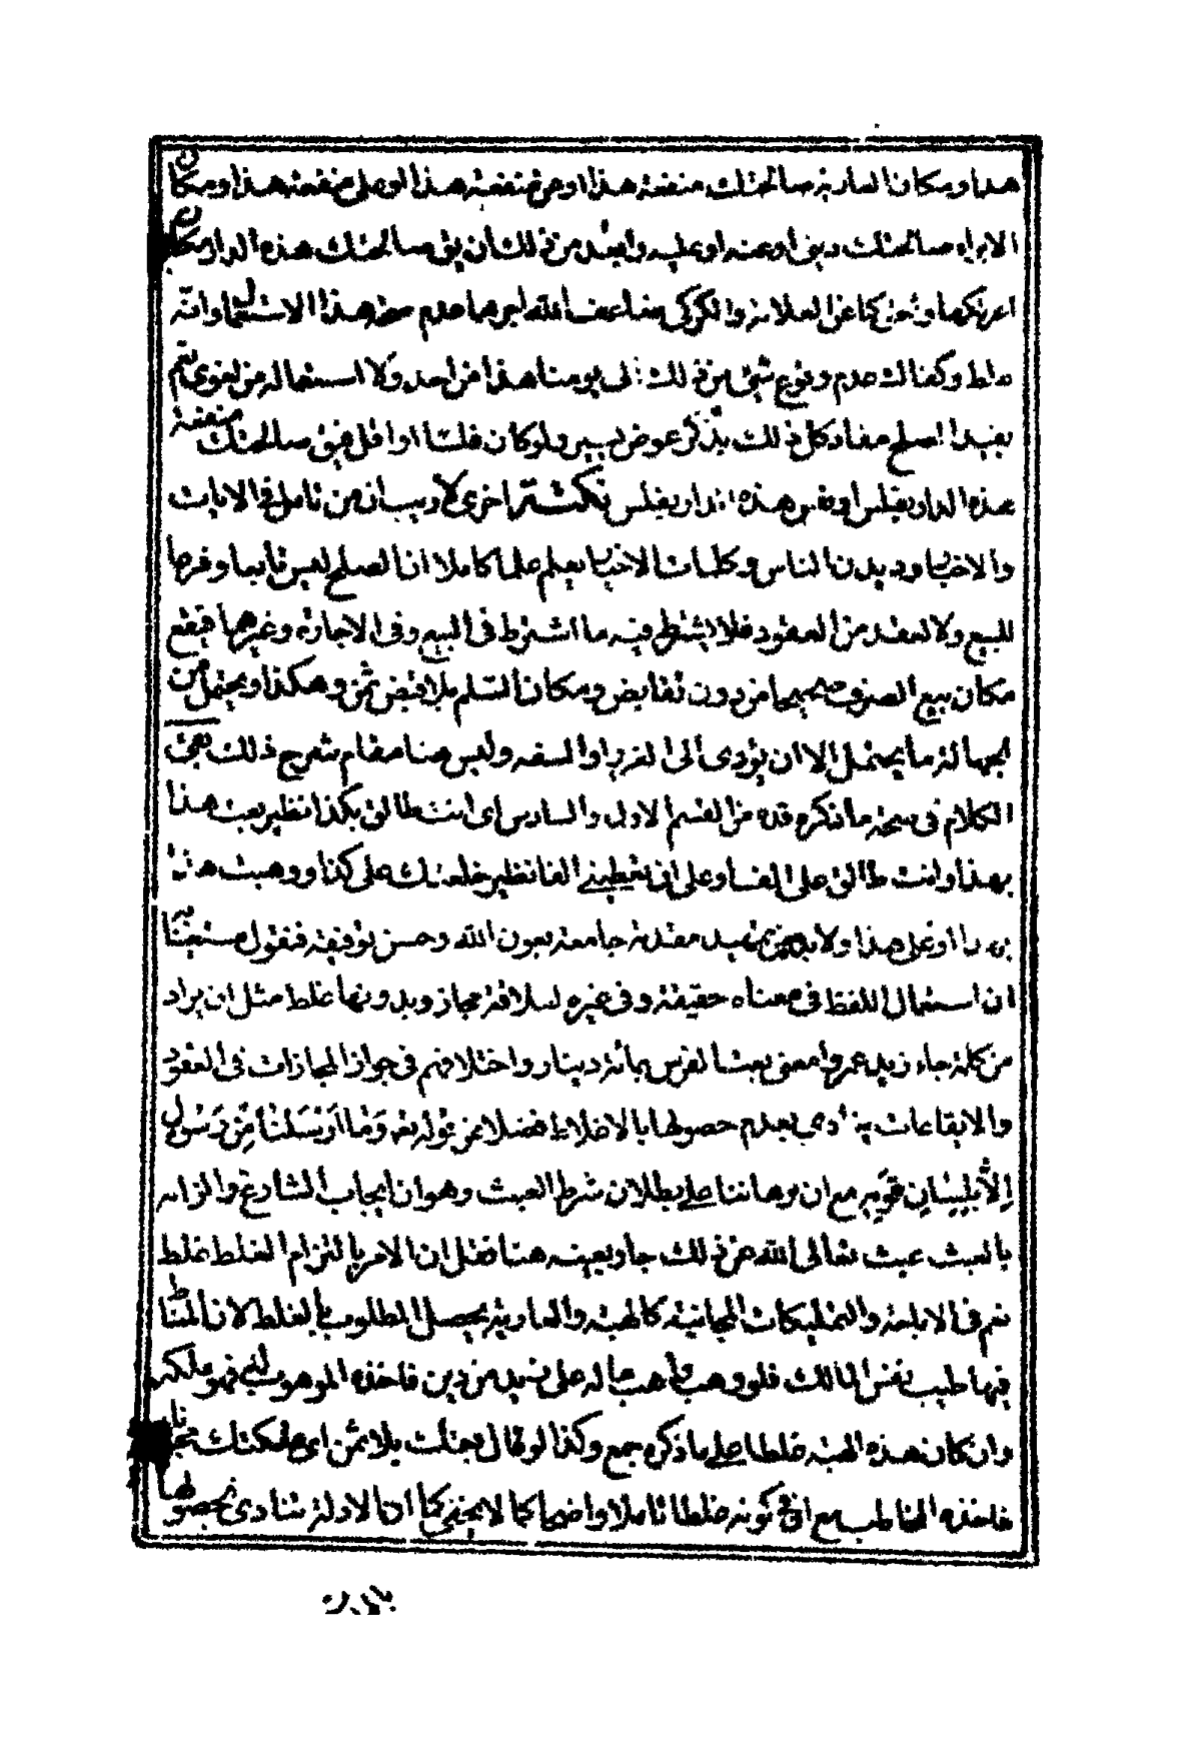 هذا ومكان العارية صالحتك منفعة هذا او عن منفعة هذا او على منفعة هذا ومكان
الابراء صالحتك ديني او عنه او عليه وابعد من ذلك ان يق صالحتك هذه الدار مكان
اعرتكها ونحن كنا عن العلامة والكركي عدم صحة هذا الاستعمال وانه
غلط وكفالك عدم وقوع شئ من ذلك الى يومنا هذا من احد ولا استعماله من لغوي نعم
يفيد الصلح مفاد كل ذلك بذكر عوض يسير ولو كان فلسا او اقل فيق صالحتك منفعة
هذه الدار بفلس او نفس هذه الدار بفلس نكتة اخرى لا ريب انه من تامل في الايات
والاخبار وديدن الناس وكلمات الاخبار يعلم علما كاملا ان الصلح ليس تابعا وفرعا
للبيع ولا لعقد من العقود فلا يشترط فيه ما اشترط في البيع وفي الاجارة وغيرهما فيقع
مكان بيع الصرف صحيحا من دون تقابض ومكان السلم بلا قبض ثمن وهكذا ويحتمل من
الجهالة ما يحتمل الا ان يؤدى الى الغرر او السفه وليس هنا مقام شرح ذلك بقى
الكلام في صحة ما نذكره قده من القسم الاول والسادس اى انت طالق بكذا نظير بعت هذا
بهذا وانت طالق على الف او على ان تعطيني الفا نظير خلعتك على كذا ووهبت هذا
بهذا او على هذا ولابد من تمهيد مقدمة جامعة بعون الله وحسن توفيقه فنقول مستعينا به
ان استعمال اللفظ في معناه حقيقة وفي غيره لعلاقة مجاز وبدونها غلط مثل ان يراد
من كلمة جاء زيد عمروا معنى بعت الفرس بمائة دينار واختلافهم في جواز المجازات في العقود
والايقاعات ينادى بعدم حصولها بالاغلاط فضلا من قوله تعه وَمٰا اَرْسَلْنٰا مِنْ رَسُولٍ
اِلاّٰ بِلِسٰانِ قَوْمِهِ مع ان برهاننا على بطلان شرط العبث وهو ان ايجاب الشارع والزامه
بالعبث عبث تعالى الله عن ذلك جار بعينه هنا فقل ان الامر بالتزام الغلط غلط
نعم في الاباحة والتمليكات المجانية كالهبة والعارية يحصل المطلوب بالغلط لان المناط
فيها طيب نفس المالك فلو وهب واهب ماله على زيد من دين فاخذه الموهوب له فهو ملكه
وان كان هذه الهبة غلطا على ما ذكره جمع وكذا لو قال بعتك بلا ثمن اى ملكتك مجانا
فاخذه المخاطب مع ان كونه غلطا تاما واضحا كما لا يخفى كما ان الادلة تنادى بحصولها